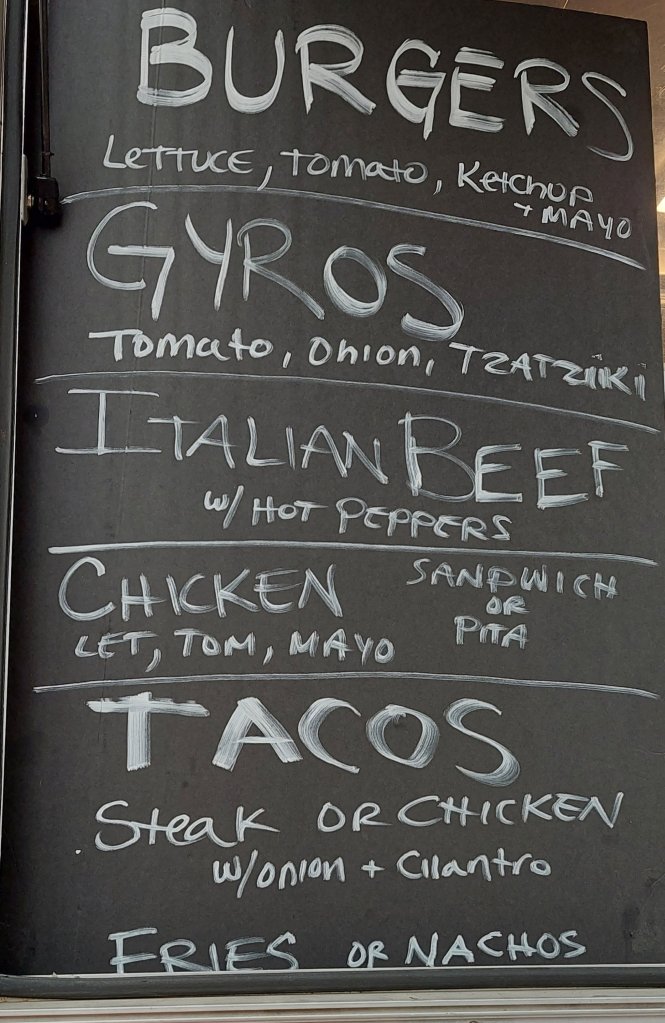 BURGERS
LETTUCE, TOMATO, KETCHUP
+ MAYO
GYROS
TOMATO, ONION, TZATZIIKI
ITALIAN BEEF
W/ HOT PEPPERS
CHICKEN
LET, TOM, MAYO
SANDWICH
OR
PITA
TACOS
Steak OR CHICKEN
W/ONION + Cilantro
FRIES OR NACHOS